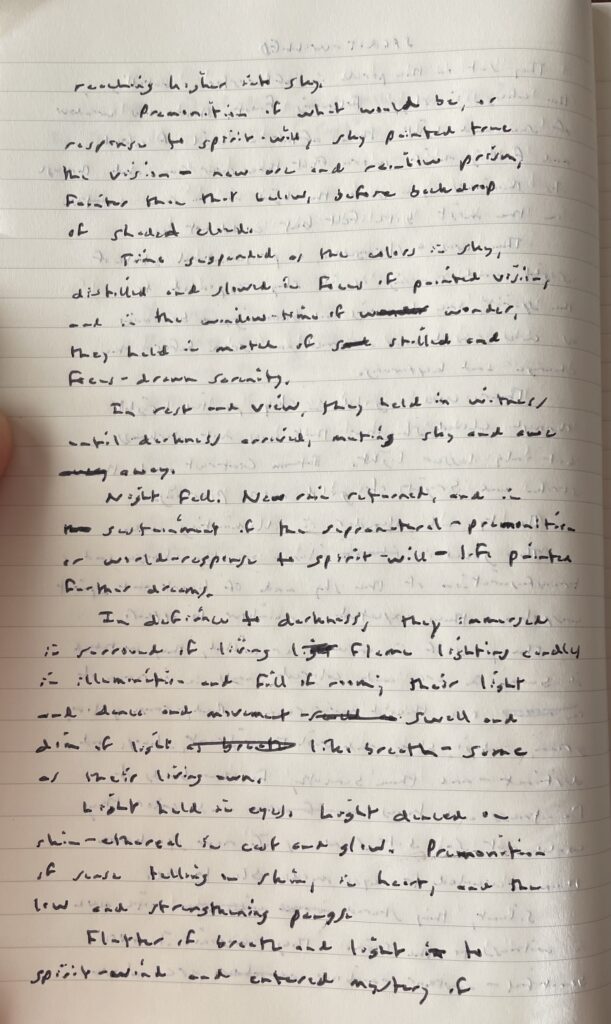 reaching higher into sky.
Premonition of what would be, or
response to spirit-will, sky painted true
the vision - new arc and rainbow prism,
fainter than that below, before backdrop
of shaded cloud.
Time suspended as the colors in sky,
distilled and slowed in focus of painted vision,
and in the window-time of wonder,
they held in match of stilled and
focus-drawn serenity.
In rest and view, they held in witness
until darkness arrived, muting sky and awe
away.
Night fell. New rain returned, and in
sustainment of the supranatural - premonition
or world-response to spirit-will - life painted
further dreams.
In defiance to darkness, they immersed
in surround of living flame lighting candles
in illumination and fill of room, their light
and dance and movement - swell and
dim of light like breath - same
as their living own.
Light held in eyes. Light danced on
skin - ethereal in cast and glow. Premonition
of sense telling on skin, in heart, and the
low and strengthening pangs.
Flutter of breath and light to
spirit-wind and entered mystery of